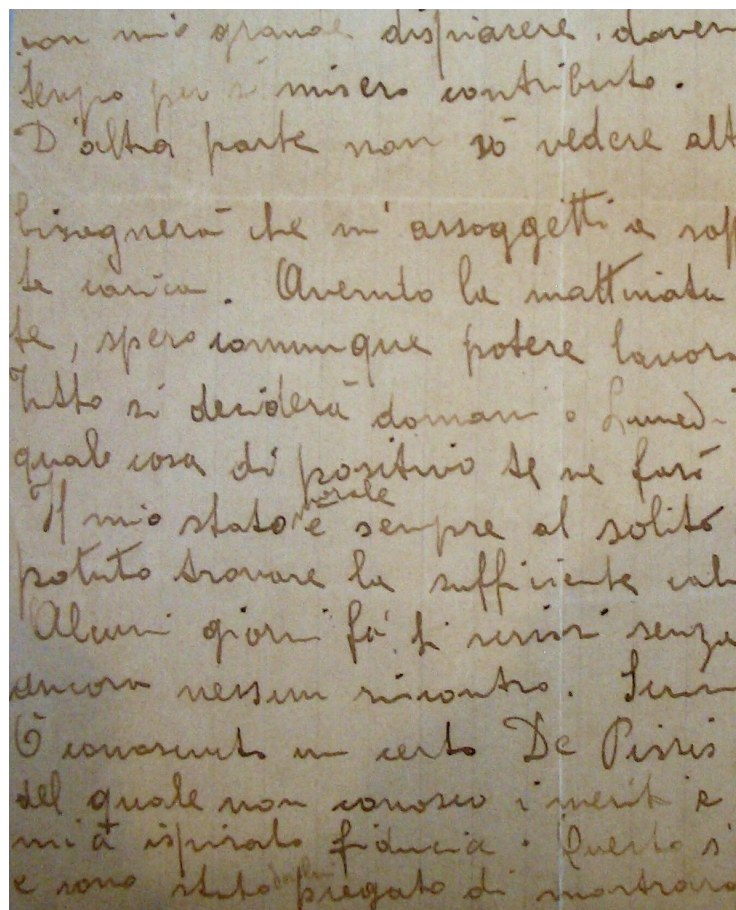 con mio grande dispiacere dover
tempo per sì misero contributo.
D'altra parte non sò vedere alt
bisognerà che m'assoggetti a sop
ta carica. Avendo la mattinata
te, spero comunque potere lavor
Tutto si deciderà domani o Lunedì
qualcosa di positivo te ne farò
Il mio stato morale è sempre al solito
potuto trovare la sufficiente cal
Alcuni giorni fà ti scrissi senza
ancora nessun riscontro.
Ò conosciuto un certo De Pisis
del quale non conosco i meriti e
mi à ispirato fiducia. Questo s
e sono stato pregato di mostrar